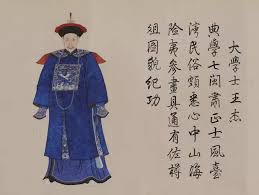 大學士王杰
典學七閩肅正士風臺
灣民俗頗悉心中山海
險夷參畫具通有佐樽
俎圖貌紀功